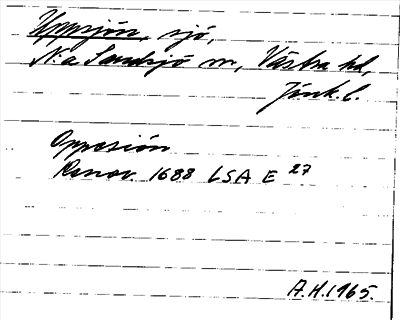 Uppsjön, sjö,
N:a Sandsjö sn, Västra hd,
Jönk. l.
Oppesiön
Renov. 1688 LSA E 27
A.H. 1965.